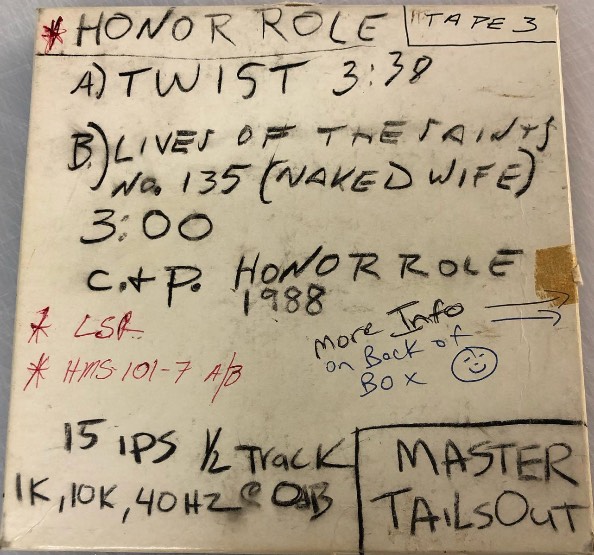 * HONOR ROLE
TAPE 3
A) TWIST 3:38
B.) LIVES OF THE SAINTS
No. 135 (NAKED WIFE)
3:00
C.+P. HONOR ROLE
1988
* LSR
* HMS-101-7 A/B
more Info
on Back of
Box
15 iPS 1/2 Track
1K, 10K, 40HZ @ 0dB
MASTER
TAiLsOuT